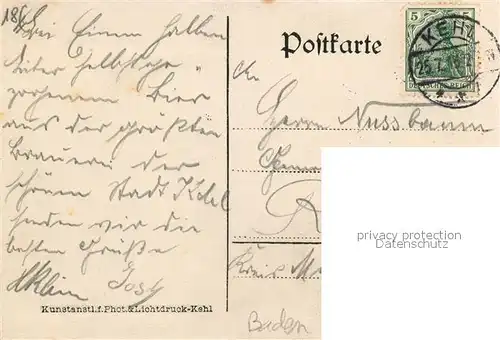 18/
Bei Einem halben
Liter selbstge-
zogenem Bier
aus der größten
Brauerei der
schönen Stadt Kehl
senden wir die
besten Grüße
HKlein Josy
Kunstanstl.f.Phot.&Lichtdruck-Kehl
Postkarte
5 5
KEHL
25.7.
DEUTSCHES REICH
An
Herrn Nussbaum
Kreis
Baden
privacy protection
Datenschutz